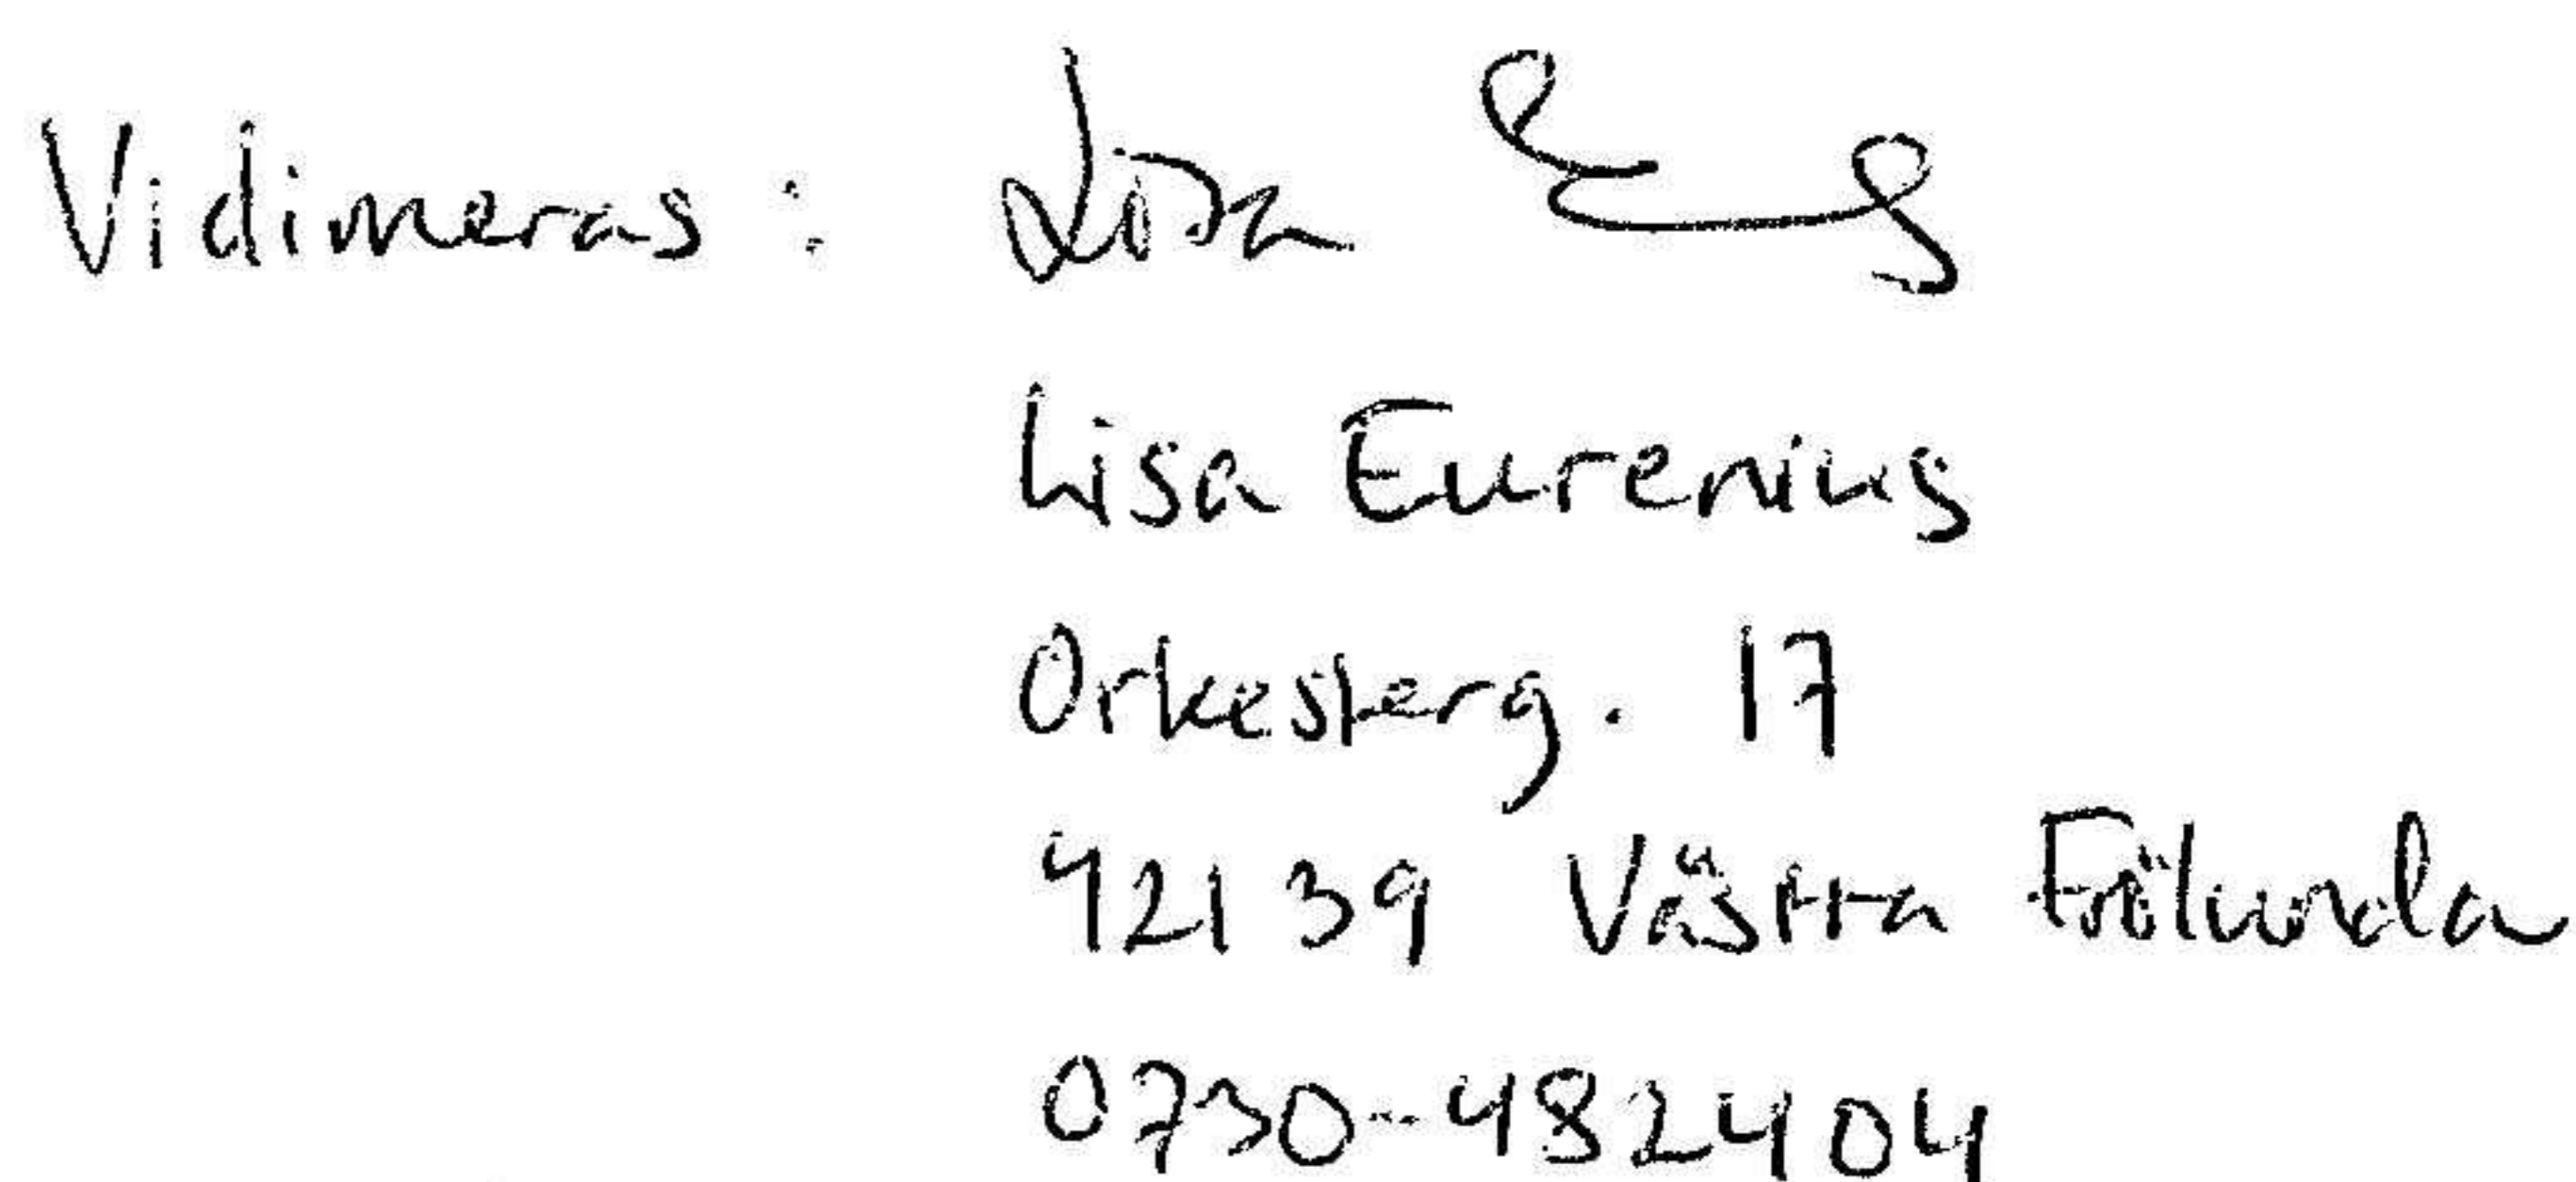 Vidimeras: Lisa
Lisa Eurenius
Orkesterg. 17
42139 Västra Frölunda
0730-482404